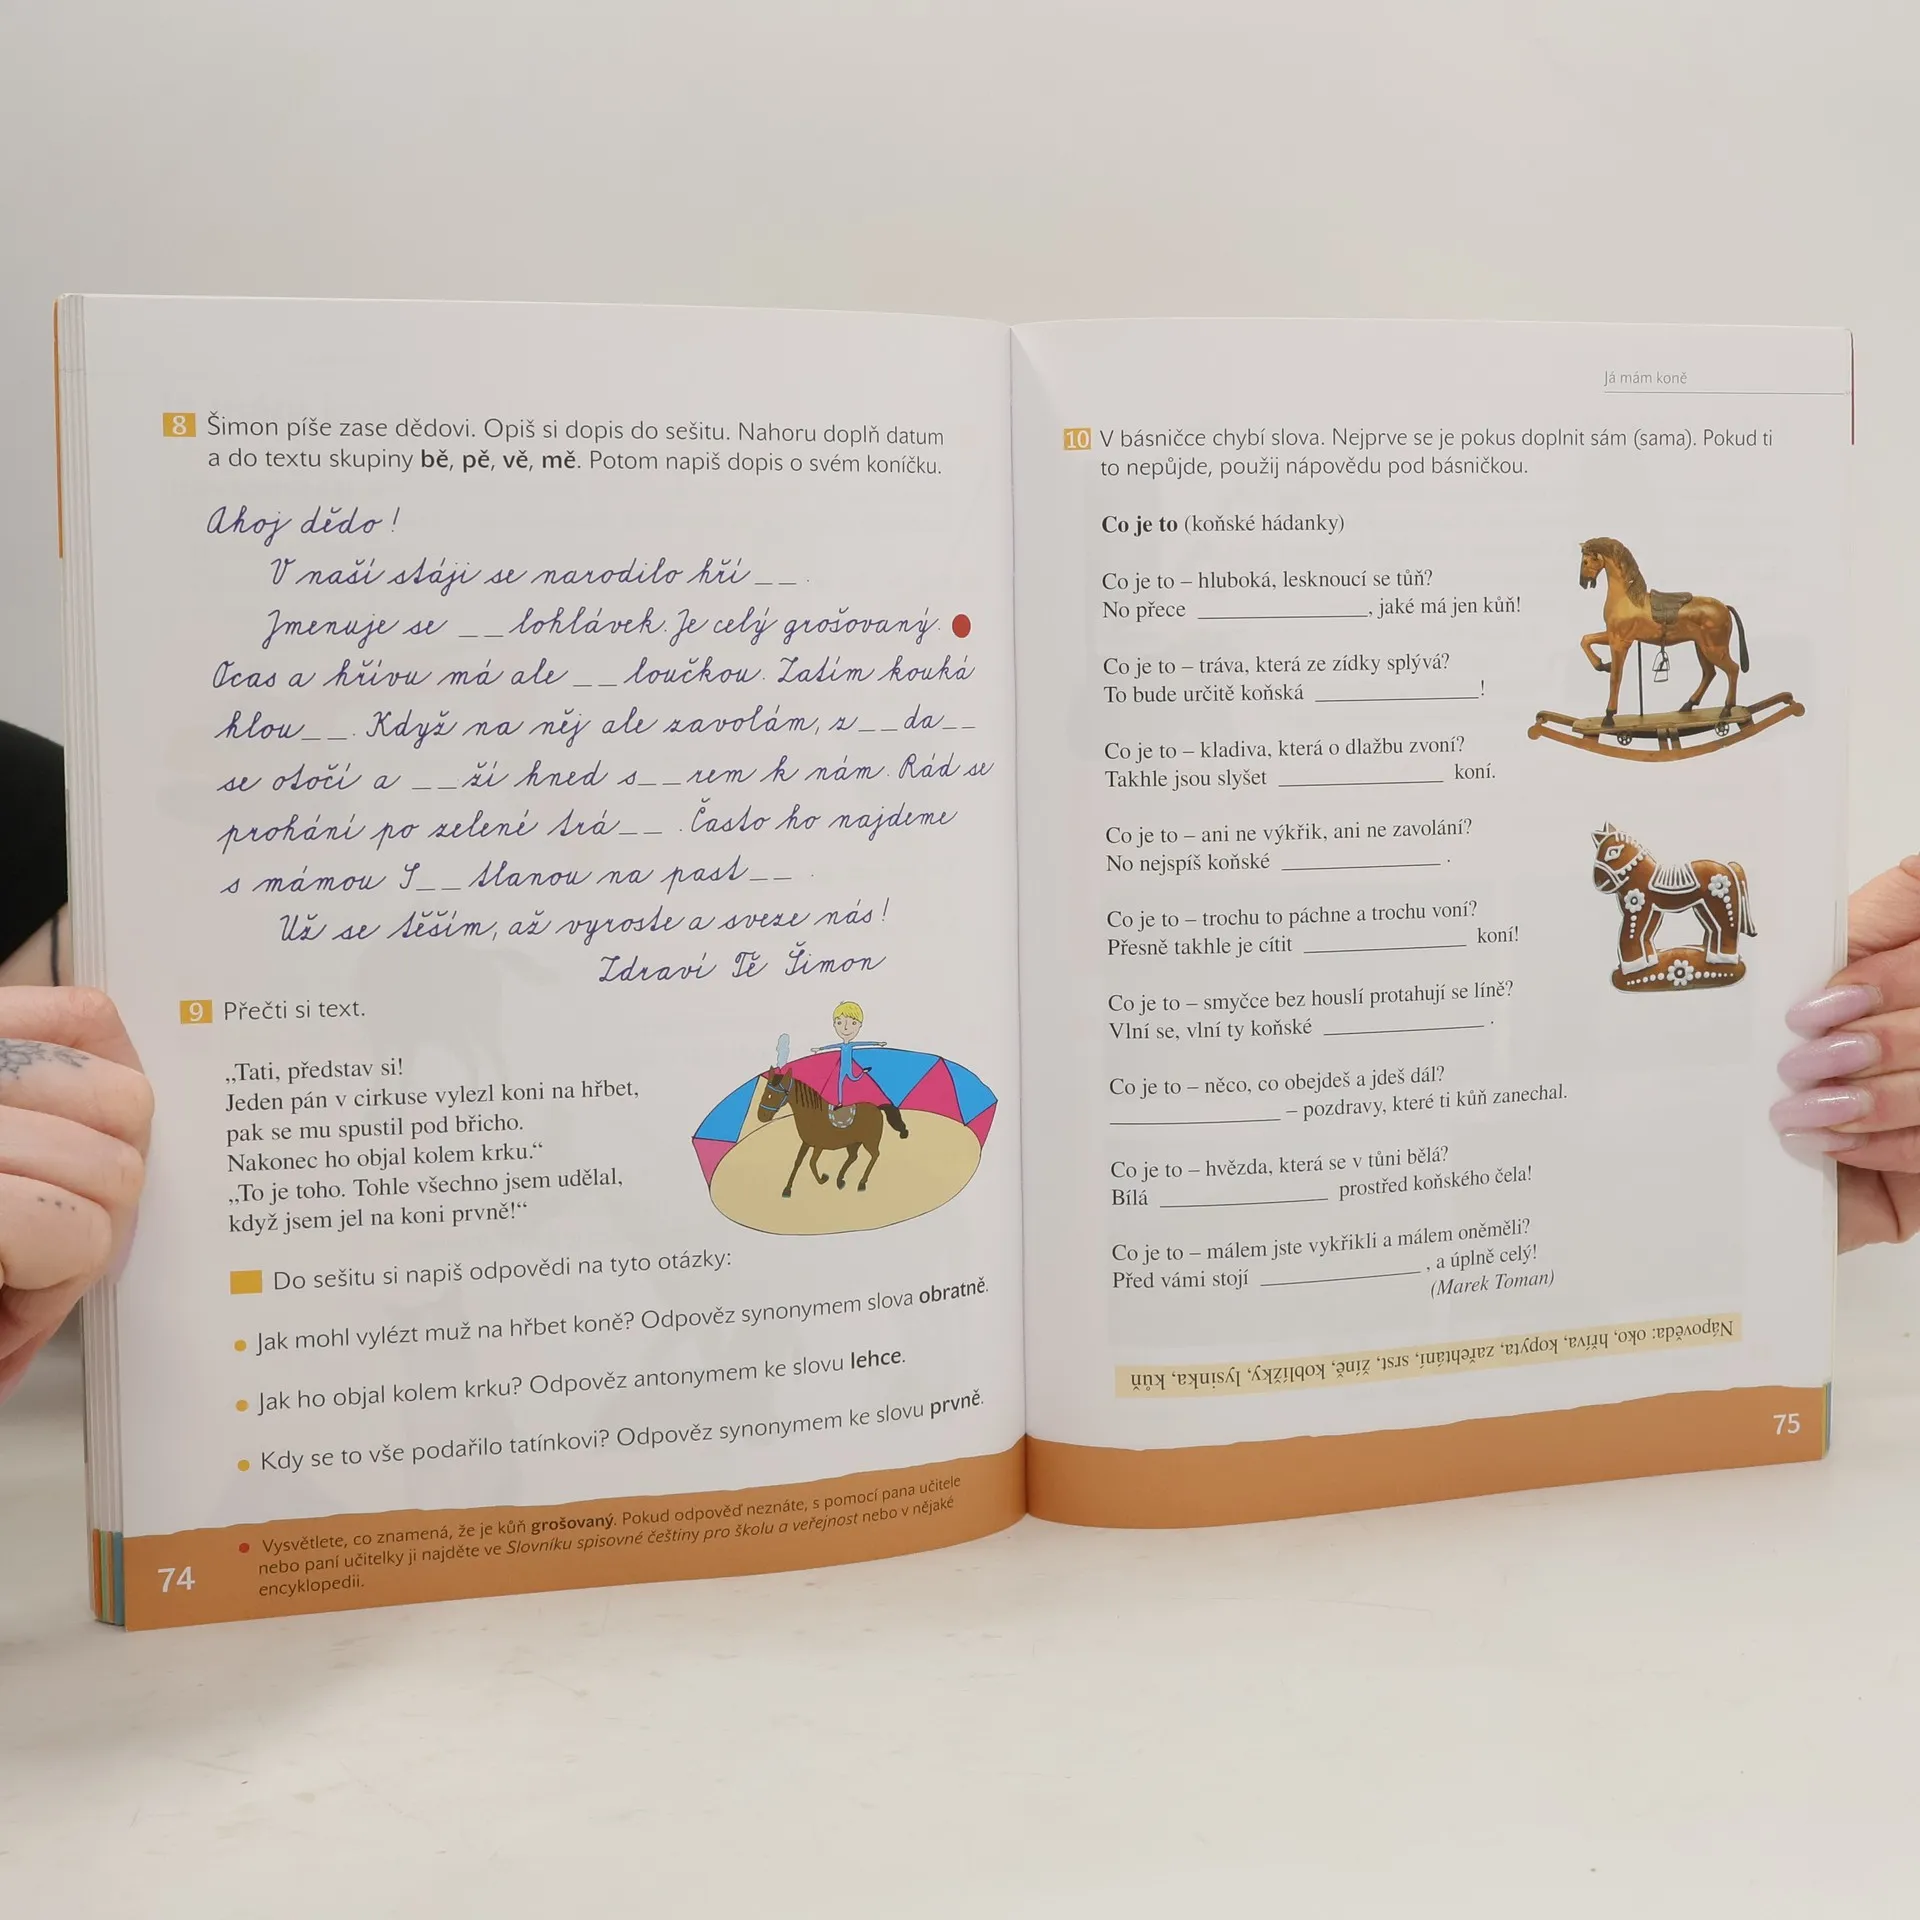 8 Šimon píše zase dědovi. Opiš si dopis do sešitu. Nahoru doplň datum
a do textu skupiny bě, pě, vě, mě. Potom napiš dopis o svém koníčku.
Ahoj dědo!
V naší stáji se narodilo hří__.
Jmenuje se __lohlávek. Je celý grošovaný.
Ocas a hřívu má ale __loučkou. Zatím kouká
hlou__. Když na něj ale zavolám, z__da__
se otočí a __ží hned s__rem k nám. Rád se
prohání po zelené trá__. Často ho najdeme
s mámou S__tlanou na past__.
Už se těším, až vyroste a sveze nás!
Zdraví Tě Šimon
9 Přečti si text.
„Tati, představ si!
Jeden pán v cirkuse vylezl koni na hřbet,
pak se mu spustil pod břicho.
Nakonec ho objal kolem krku.“
„To je toho. Tohle všechno jsem udělal,
když jsem jel na koni prvně!“
Do sešitu si napiš odpovědi na tyto otázky:
• Jak mohl vylézt muž na hřbet koně? Odpověz synonymem slova obratně.
• Jak ho objal kolem krku? Odpověz antonymem ke slovu lehce.
• Kdy se to vše podařilo tatínkovi? Odpověz synonymem ke slovu prvně.
• Vysvětlete, co znamená, že je kůň grošovaný. Pokud odpověď neznáte, s pomocí pana učitele
nebo paní učitelky ji najděte ve Slovníku spisovné češtiny pro školu a veřejnost nebo v nějaké
encyklopedii.
74
Já mám koně
10 V básničce chybí slova. Nejprve se je pokus doplnit sám (sama). Pokud ti
to nepůjde, použij nápovědu pod básničkou.
Co je to (koňské hádanky)
Co je to – hluboká, lesknoucí se tůň?
No přece ____________, jaké má jen kůň!
Co je to – tráva, která ze zídky splývá?
To bude určitě koňská ____________!
Co je to – kladiva, která o dlažbu zvoní?
Takhle jsou slyšet ____________ koní.
Co je to – ani ne výkřik, ani ne zavolání?
No nejspíš koňské ____________.
Co je to – trochu to páchne a trochu voní?
Přesně takhle je cítit ____________ koní!
Co je to – smyčce bez houslí protahují se líně?
Vlní se, vlní ty koňské ____________.
Co je to – něco, co obejdeš a jdeš dál?
____________ – pozdravy, které ti kůň zanechal.
Co je to – hvězda, která se v tůni bělá?
Bílá ____________ prostřed koňského čela!
Co je to – málem jste vykřikli a málem oněměli?
Před vámi stojí ____________, a úplně celý!
(Marek Toman)
Nápověda: oko, hříva, kopyta, zařehtání, srst, žíně, koblížky, lysinka, kůň
75